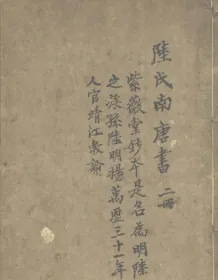 陸氏南唐書 二冊
紫薇堂鈔本是名為明陸
之淥孫陸明揚萬歷三十一年
人官靖江教諭